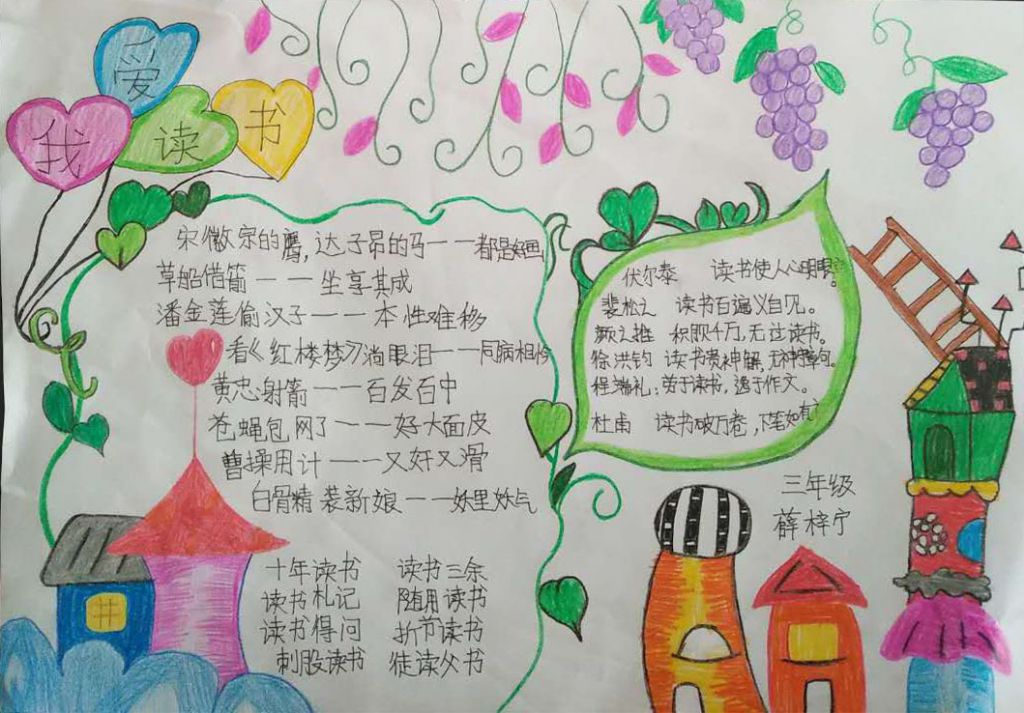 我爱读书
宋徽宗的鹰,达子昂的马——都是好画
草船借箭——坐享其成
潘金莲偷汉子——本性难移
看《红楼梦》淌眼泪——同病相怜
黄忠射箭——百发百中
苍蝇包网了——好大面皮
曹操用计——又奸又滑
白骨精装新娘——妖里妖气
十年读书 读书三余
读书札记 随用读书
读书得间 折节读书
刺股读书 徒读父书
伏尔泰 读书使人心明眼
裴松之 读书百遍义自见。
颜之推 积财千万,无过读书。
徐洪钧 读书贵神解,无
程端礼:劳于读书,逸于作文。
杜甫 读书破万卷,下笔如有
三年级
薛梓宁